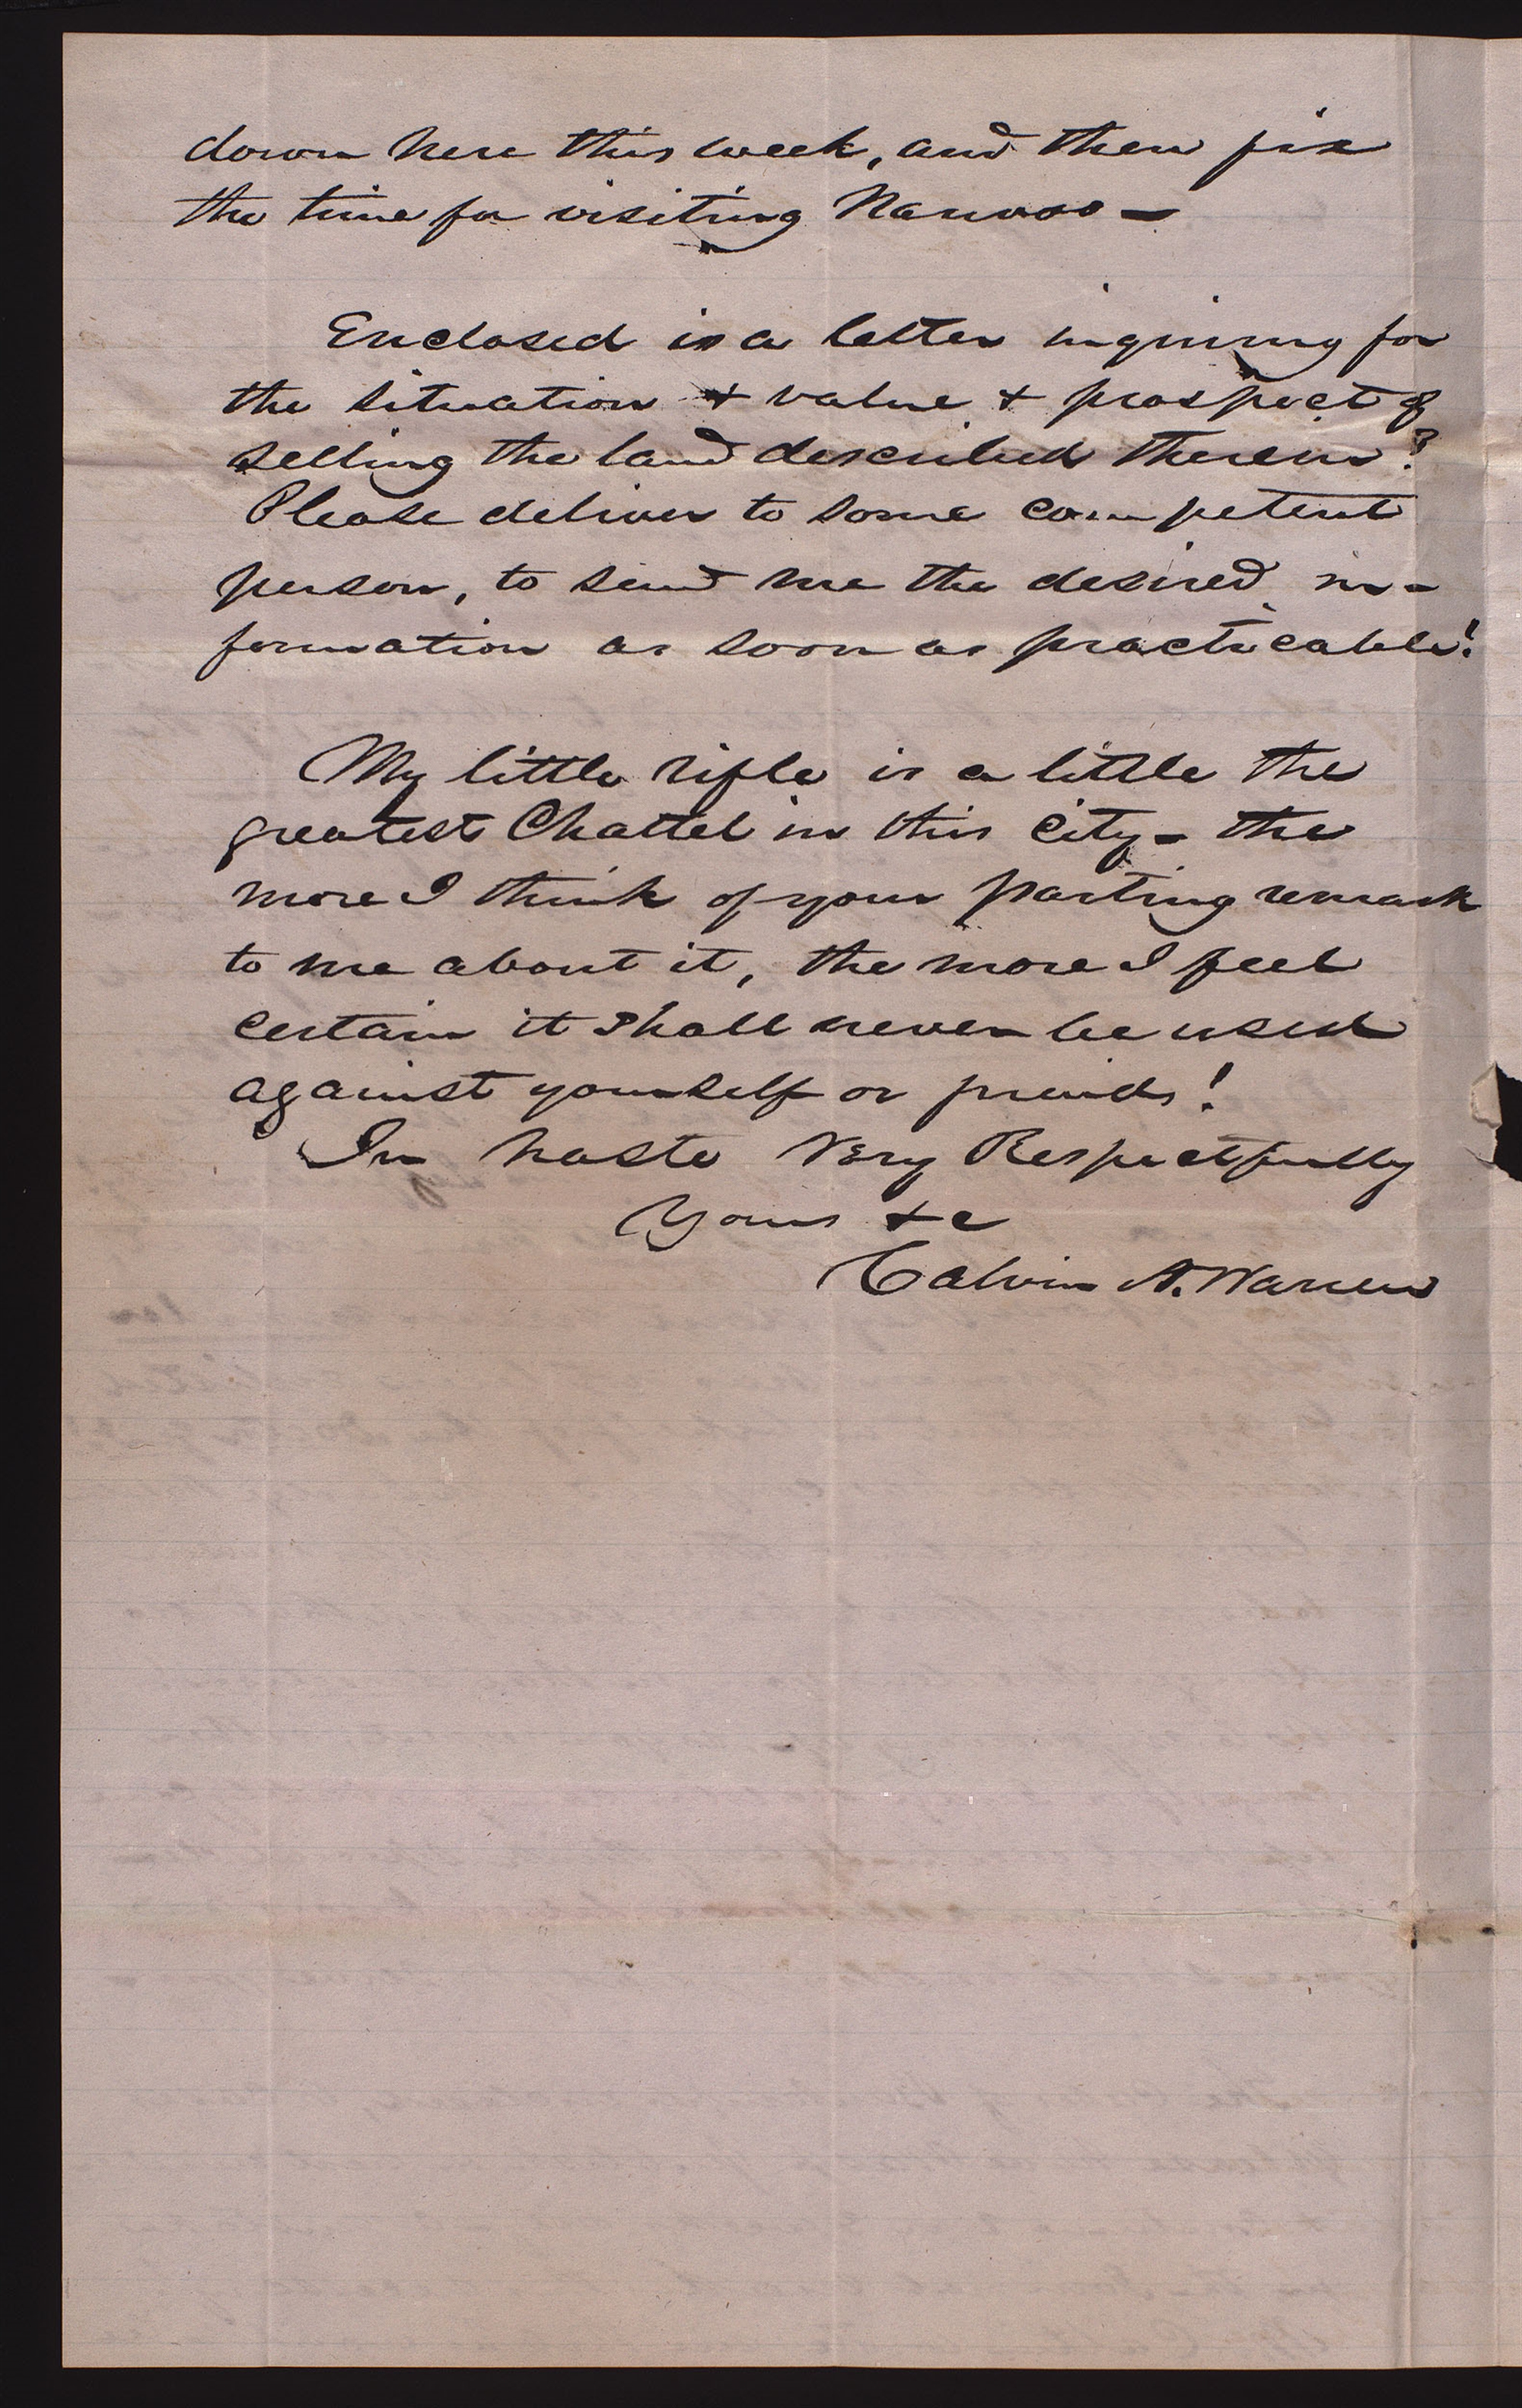 down here this week, and then fix
the time for visiting Nauvoo –
Enclosed is a letter inquiring for
the situation & value & prospect of
selling the land described therein?
Please deliver to some competent
person, to send me the desired in-
formation as soon as practicable!
My little rifle is a little the
greatest Chattel in this city – the
more I think of your parting remark
to me about it, the more I feel
certain it shall never be used
against yourself or friends!
In haste Very Respectfully
Yours &c
Calvin A. Warren